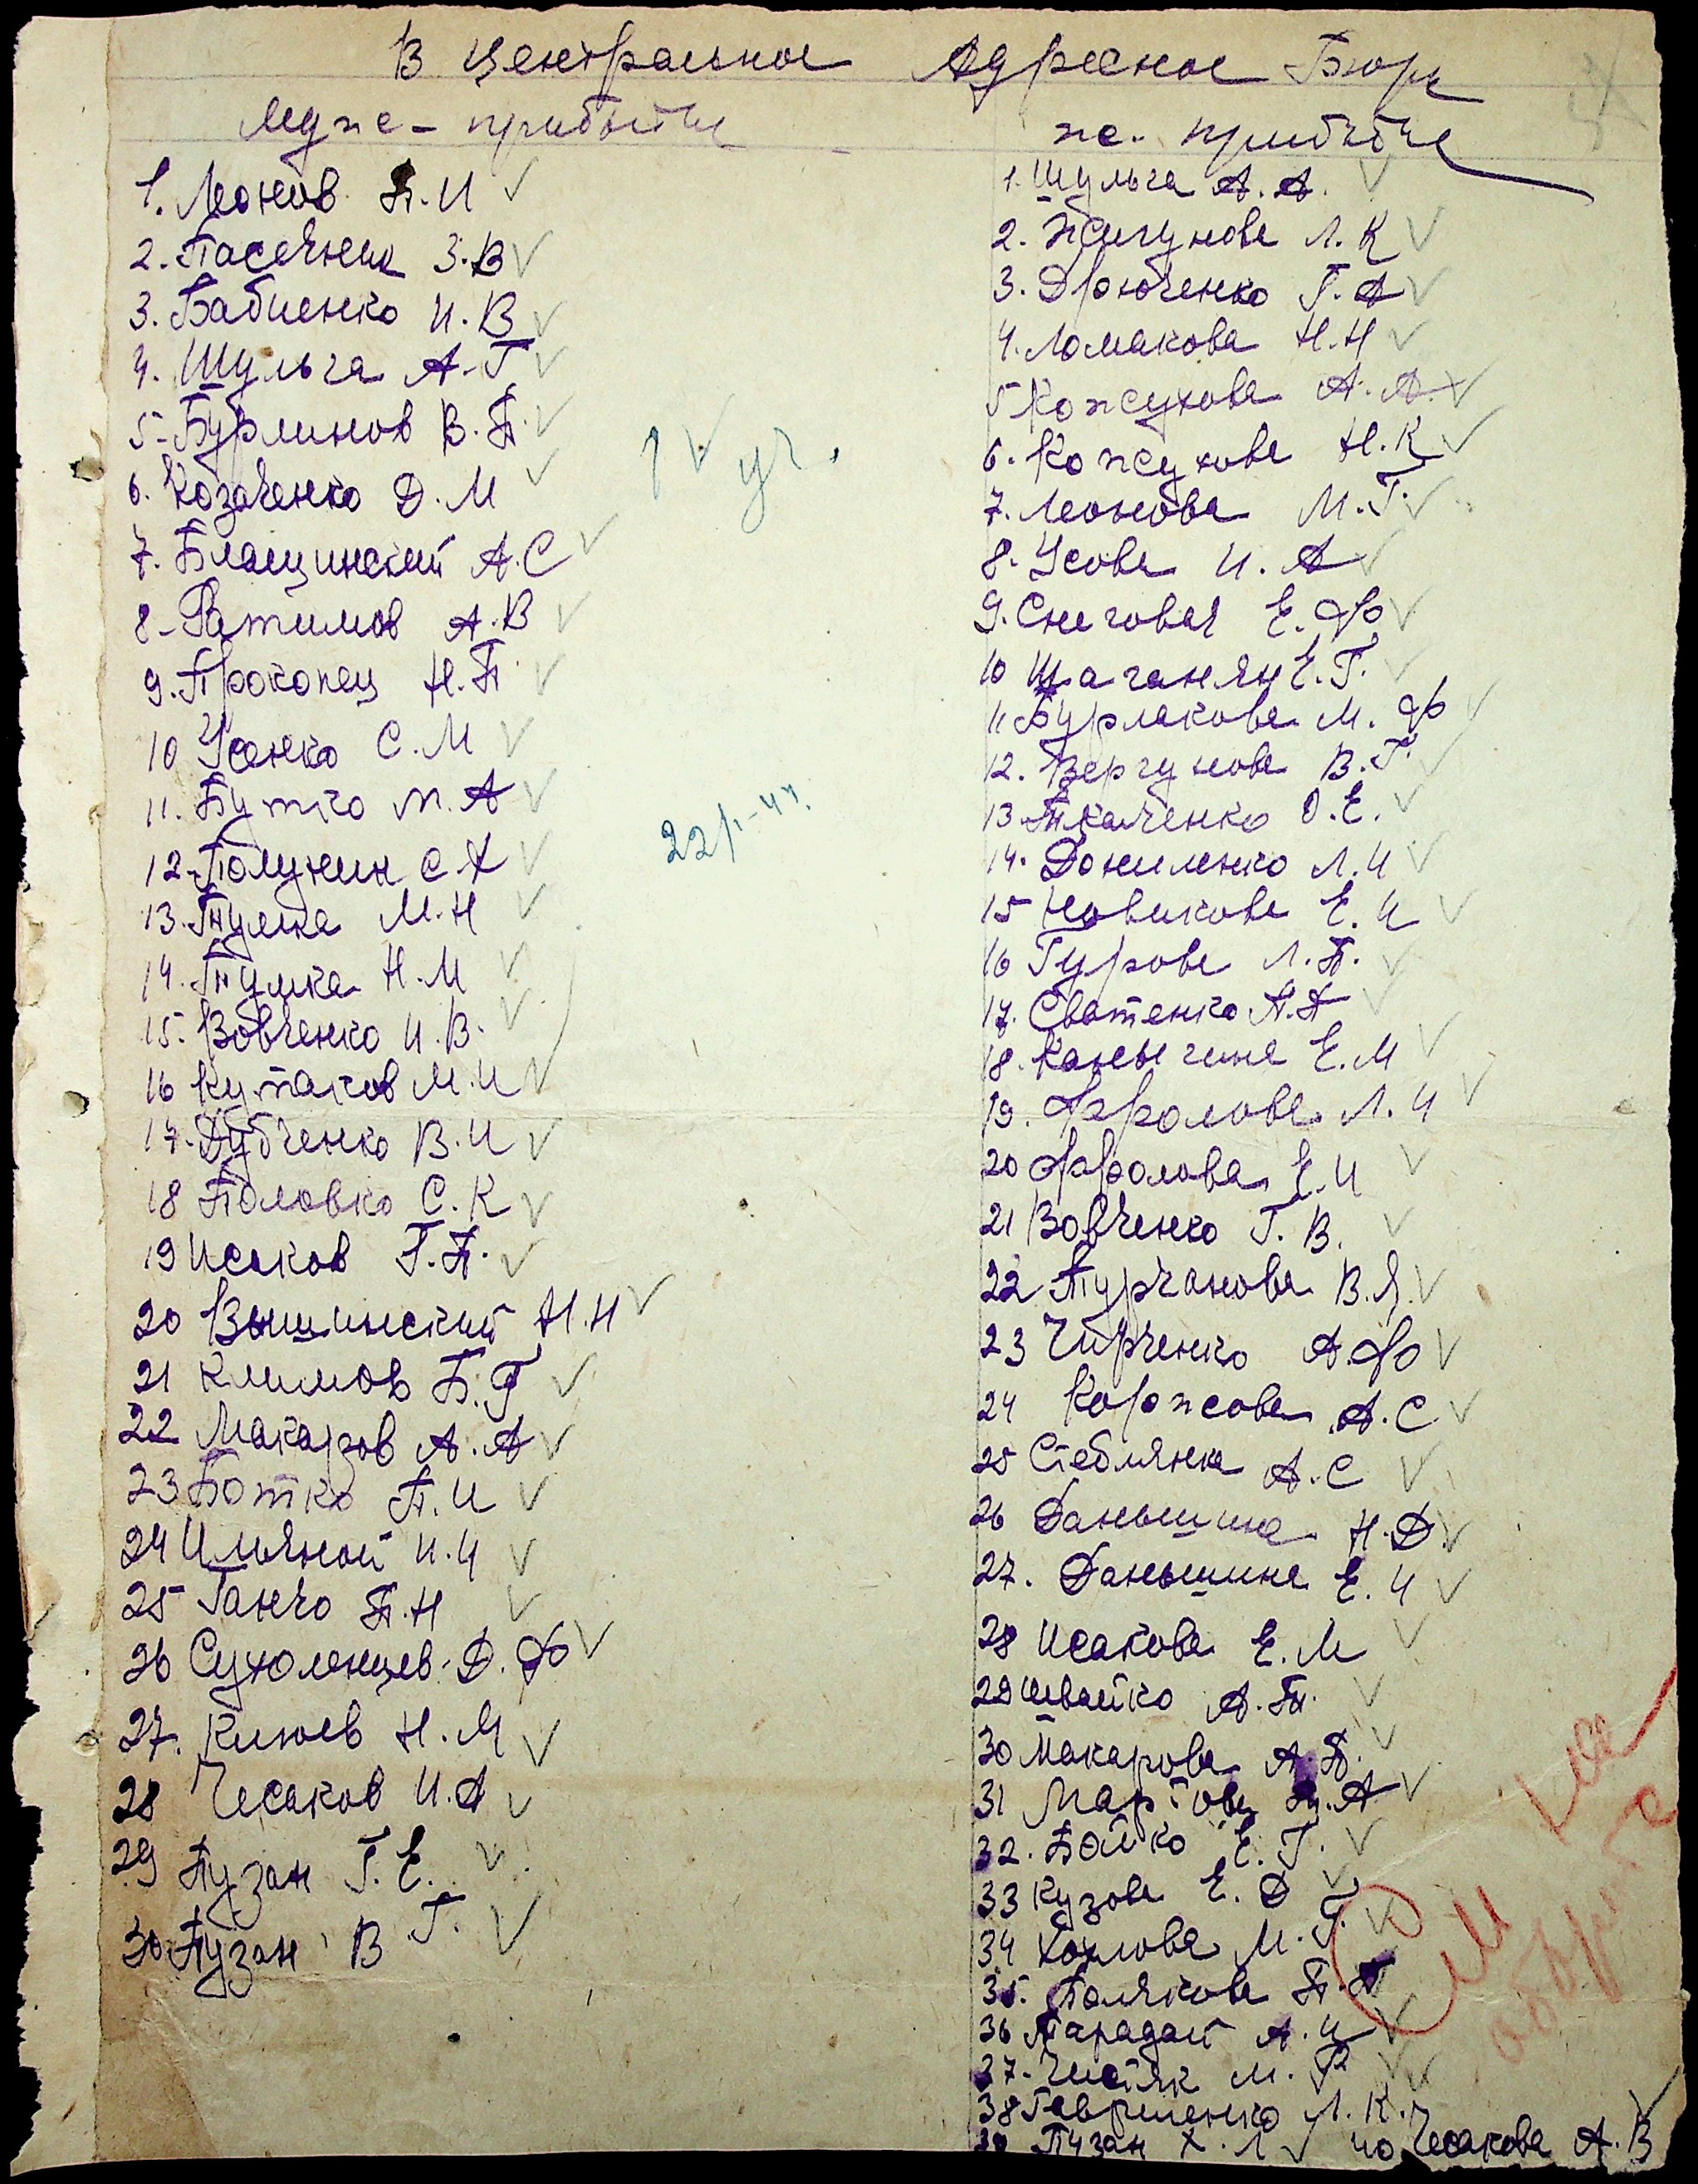 В Центральное Адресное Бюро
Муж - прибытие
1. Леонов П. И
2. Пасечник З. В
3. Бабиенко И. В
4. Шульга А. Г
5. Бурлинов В. П.
6. Козаченко Д. М
7. Блащинский А. С
8. Ратимов А. В
9. Прокопец Н. П
10 Усенко С. М
11. Бутко М. А
12. Полунин С. Х
13. Тумка М. Н
14. Тумка Н. М
15. Вовченко И. В.
16 Кутаков М. И
17. Дубченко В. И
18 Головко С. К
19 Исаков Г. П.
20 Вышинский Н. Н
21 Климов Б. Г
22 Макаров А. А
23 Ботко П. И
24 Ильяной И. И
25 Ганчо П. Н
26 Сухоленцев Д. Ф
27. Клюев Н. М
28 Чесаков И. А
29 Пузан Г. Е.
30. Пузан В. Г.
1 ✓ уч.
22/I-44.
же. прибытие
1. Шульга А. А.
2. Жигунова Л. К
3. Дрюченко Г. А
4. Ломакова Н. Н
5 Кожухова А. А.
6. Кожухова Н. К
7. Леонова М. Г.
8. Усова И. А
9. Снеговая Е. Ф
10 Шаганян Е. Г.
11. Бурлакова М. Ф
12. Вергунова В. Г.
13. Ткаченко О. Е.
14. Даниленко Л. И
15 Новикова Е. И
16 Гурова Л. П.
17. Сватенко А. А
18. Каныгина Е. М
19. Фролова Л. И
20 Фролова Е. И
21 Вовченко Г. В.
22 Турчанова В. Я.
23 Чирченко А. Ф
24 Коржова А. С
25 Стеблянка А. С
26 Даньшина Н. Д.
27. Даньшина Е. И
28 Исакова Е. М
29 Швайко А. П.
30 Макарова А. П.
31 А
32. Бойко Е. Г.
33 Кузова Е. Д
34 Хохлова М. Г.
35. Полякова П.
36 Тарадай А. И
37. Чистяк М.
38 Гавриленко Л. К.
39 Пузан Х. Л
40 Чесакова А. В
См на
обороте